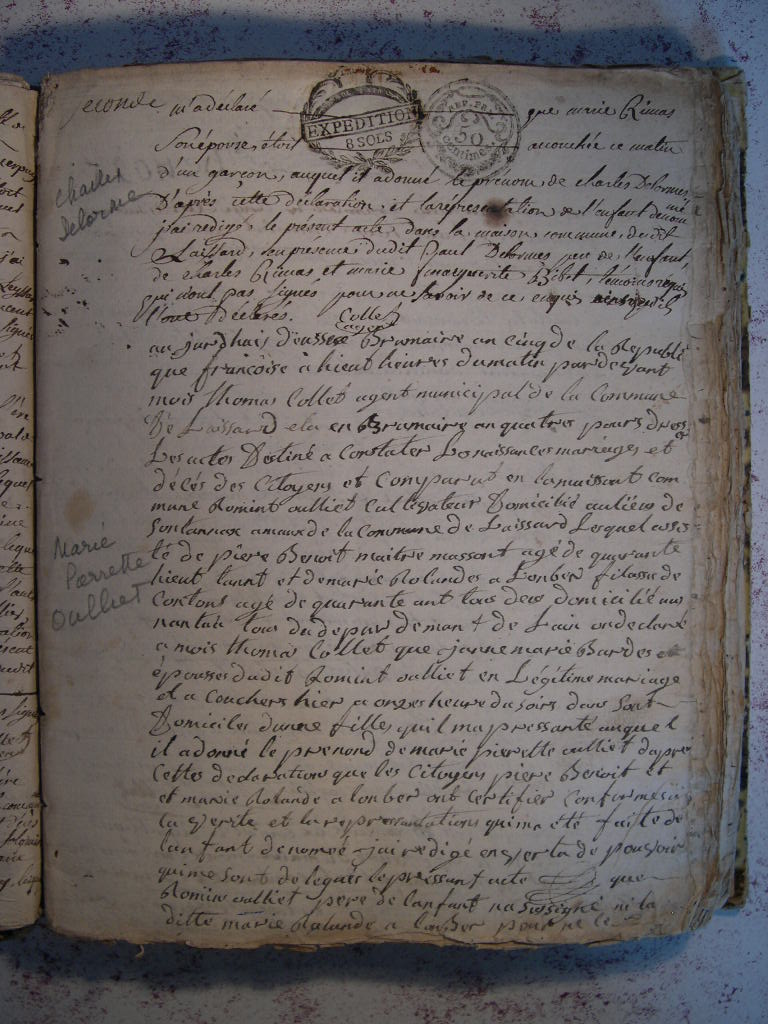 seconde m'a déclaré que marie Rimas
EXPEDITION
8 SOLS
REP. FR.
50
centimes
Son épouse, étoit accouchée ce matin
d'un garçon, auquel il a donné le prénom, de charles Delormes
Charles
Delorme
D'après cette déclaration, et la représentation de l'enfant dénommé
j'ai redigé, le présent acte, dans la maison, commune, dudit
Laissard, en présence, dudit paul Delormes père de l'enfant,
de charles Rimas et marie marguerite Bibet, témoins
qui n'ont pas signés pour ne savoir de ce enquis ainsi qu'ils
l'ont Déclarés. Collet
agent
au jurdhuis deusse Brumaire an cinq de la Republi
que françoise à hieut heures du matin par devant
mois Thomas Collet agent municipal de la Commune
De Laissard elu en Brumaire an quatres pours dres
Les actes Destiné a Constater Les naissances mariages et
décés des Citoyens et Comparut en la maisont com
mune Romint oulliet Cullevateur Domicilié au lieus de
Sontannax amaux de la Commune de Laissard Lesquel assis
té de piere Benoit maitre massont agé de quarante
Marie
Pierrette
Oulliet
hieut tannt et de marie Rolandes a Lonber filasse de
Cortons agé de quarante ant tous deus domicilié au
nantua tous du depar deman t de Lain on declaré
a mois thomas Collet que janne marie Bardes et
épousses dudit Romint oulliet en Légitime mariage
et a Couchers hier a onzes heure du soirs dans sont
Domiciles dunne filles quil ma pressanté auquel
il adonné le prenond de marie pierette oulliet dapre
Cettes declarations que les Citoyens piere Benoit et
et marie Rolande a lonber ont Certifier Conforme a
La verite et la repressantations qui ma été faitte de
lanfant denomeé jai redigé en verta de pouvoir
qui me sont delegués le pressant acte que
Romint oulliet pere de lanfant na sussigné ni la
ditte marie Rolande a lonber pour ne le